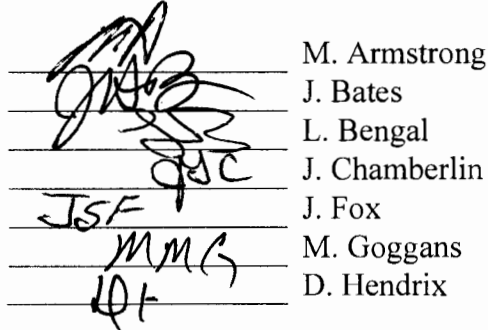 M. Armstrong
J. Bates
L. Bengal
JJC J. Chamberlin
JSF J. Fox
MMG M. Goggans
DH D. Hendrix